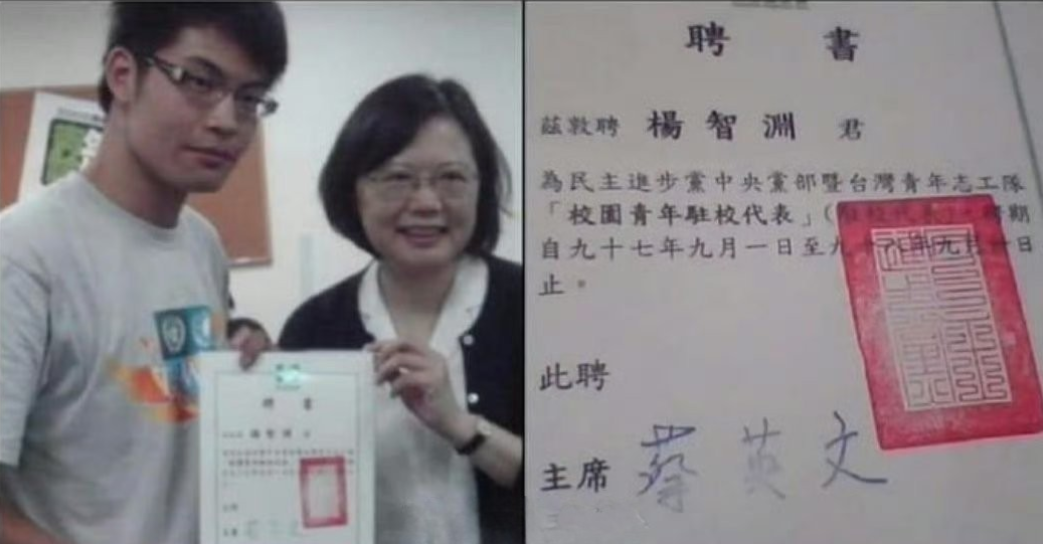 聘書
茲敦聘 楊智淵 君
為民主進步黨中央黨部暨台灣青年志工隊
「校園青年駐校代表」（駐校代表），聘期
自九十七年九月一日至九十八年九月一日
止。
此聘
主席 蔡英文